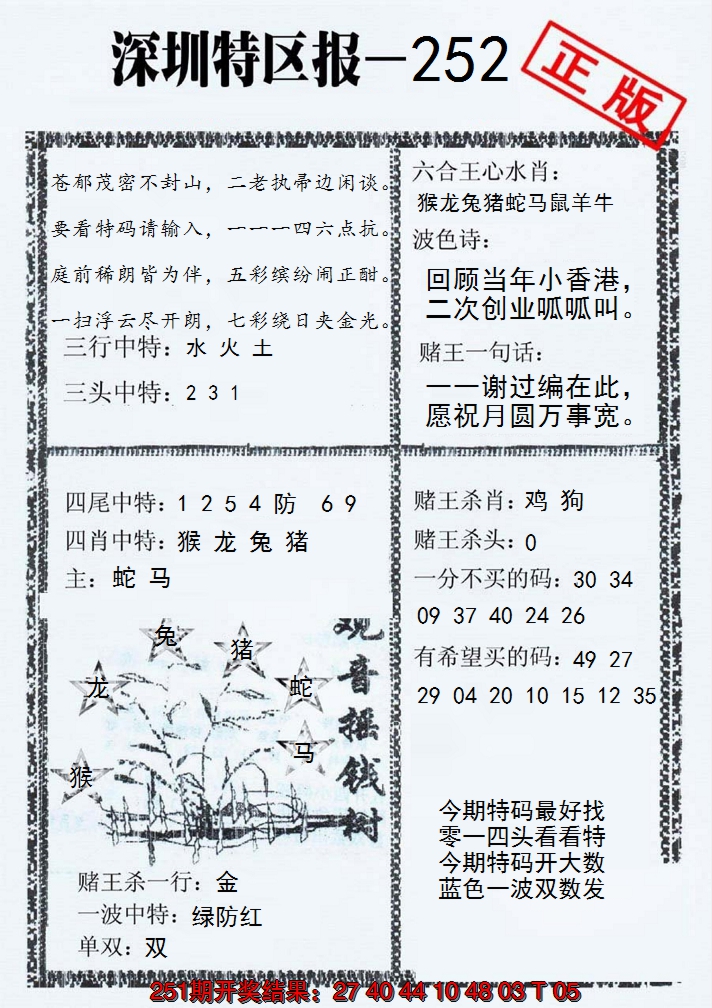 深圳特区报—252
正版
苍郁茂密不封山，二老执帚边闲谈。
要看特码请输入，一一一四六点抗。
庭前稀朗皆为伴，五彩缤纷闹正酣。
一扫浮云尽开朗，七彩绕日夹金光。
三行中特：水 火 土
三头中特：2 3 1
六合王心水肖：
猴龙兔猪蛇马鼠羊牛
波色诗：
回顾当年小香港，
二次创业呱呱叫。
赌王一句话：
一一谢过编在此，
愿祝月圆万事宽。
四尾中特：1 2 5 4 防 6 9
四肖中特：猴 龙 兔 猪
主：蛇 马
赌王杀肖：鸡 狗
赌王杀头：0
一分不买的码：30 34
09 37 40 24 26
有希望买的码：49 27
29 04 20 10 15 12 35
兔
猪
龙
蛇
马
猴
观音摇钱树
赌王杀一行：金
一波中特：绿防红
单双：双
今期特码最好找
零一四头看看特
今期特码开大数
蓝色一波双数发
251期开奖结果：27 40 44 10 48 03 T 05